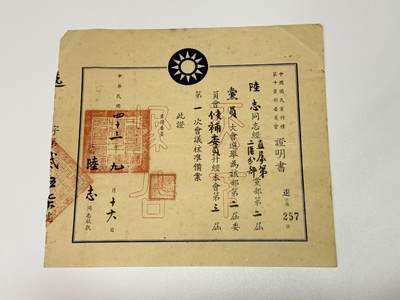 中國國民黨特種
第十黨部委員會
證明書
選字第257號
陸志同志經直屬第二區分部黨部第二屆
黨員大會選舉為該部第二屆委
員會候補委員并經本會第三屆
第一次會議核准備案
此證
中華民國四十三年九月十六日
陸志同志收執